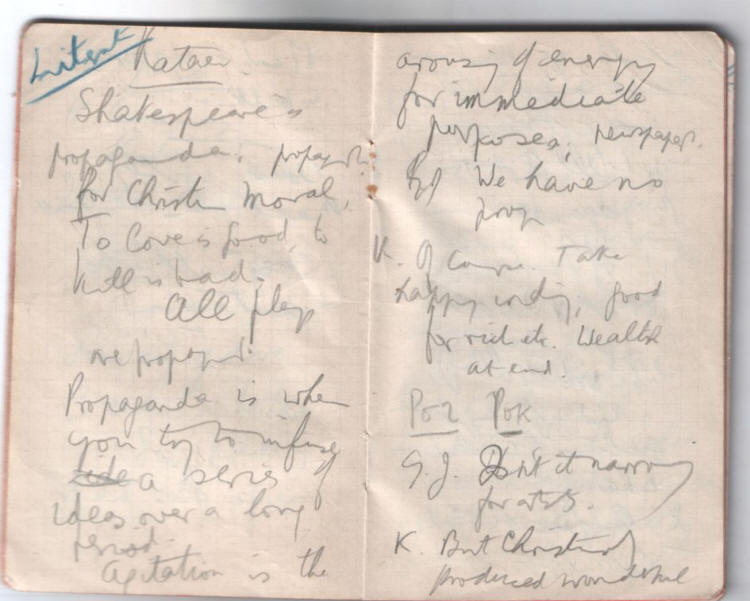 Kataev.
Shakespeare is
propaganda,
for Christn moral,
To love is good, to
kill is bad.
All plays
are propagand.
Propaganda is when
you try to infuse
a series of
ideas over a long
period.
Agitation is the
arousing of energy
for immediate
purposes, newspaper.
We have no
prop
K. Of course. Take
happy ending, good
for rich etc. Wealth
at end.
G.J. Isn't it narrow
for artists.
K. But Christianity
produced wonderful